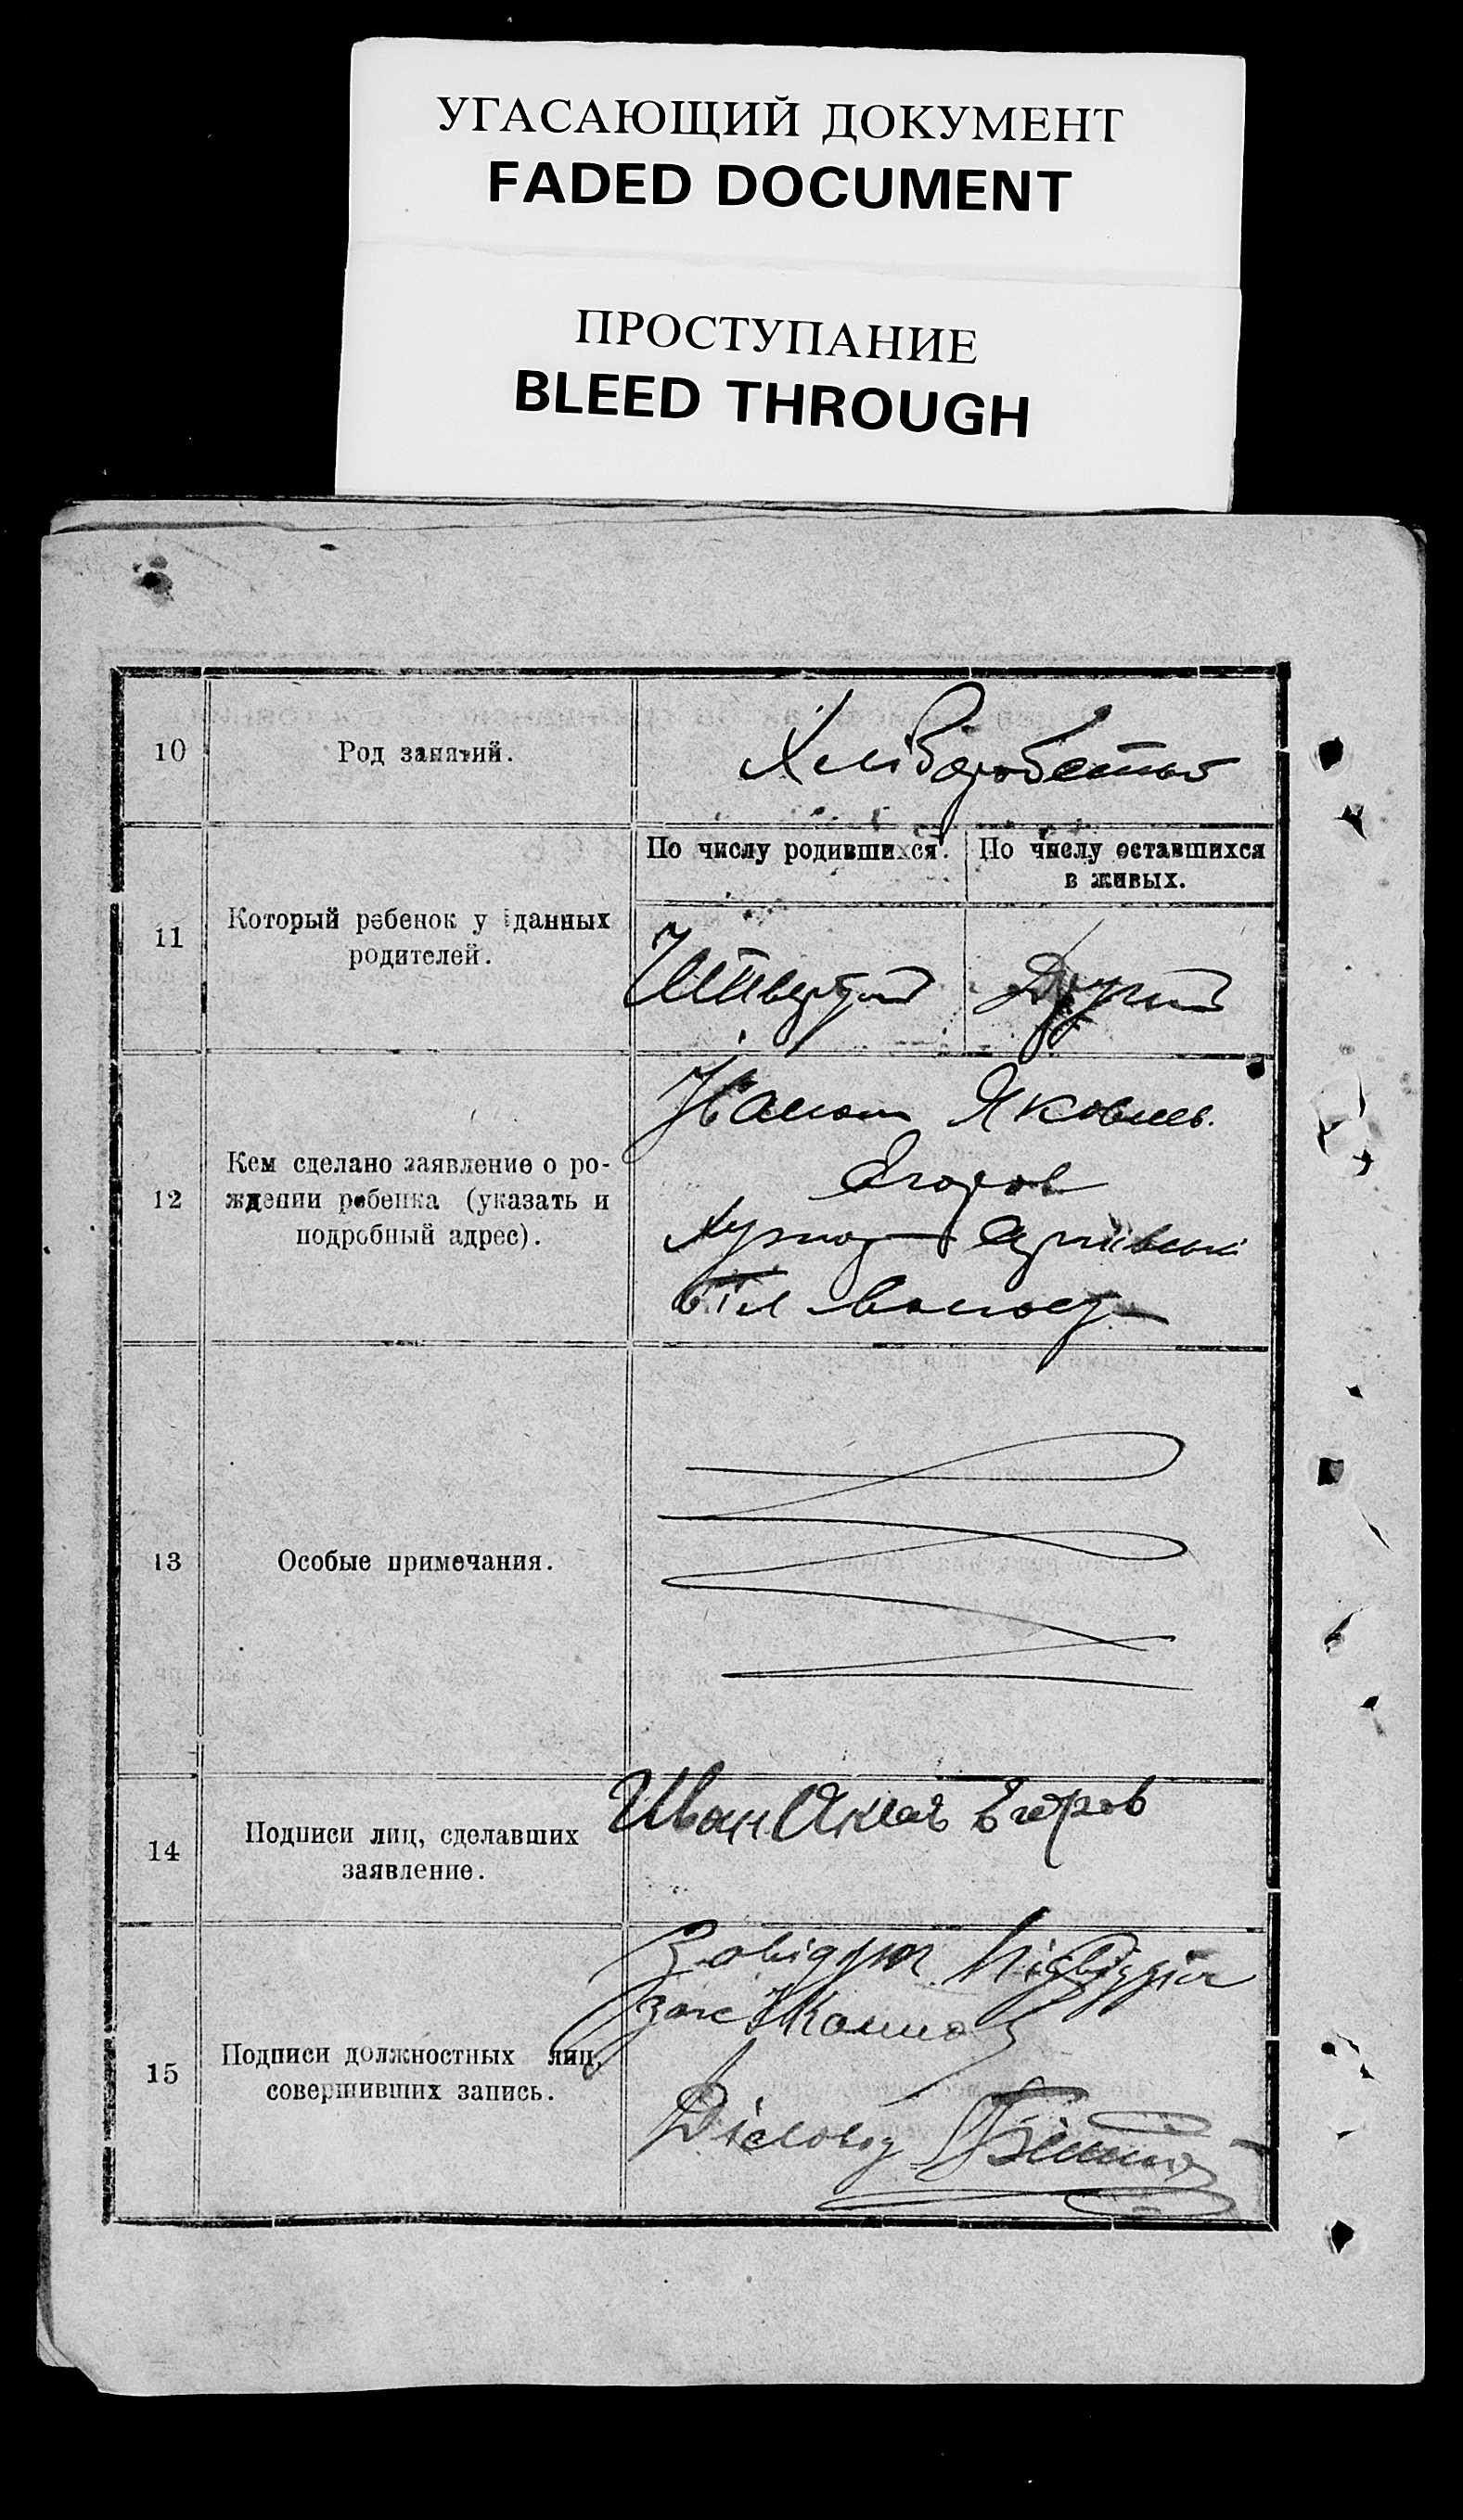 УГАСАЮЩИЙ ДОКУМЕНТ
FADED DOCUMENT
ПРОСТУПАНИЕ
BLEED THROUGH
10
Род занятий.
Хліборобство
11
Который ребенок у данных
родителей.
По числу родившихся.
По числу оставшихся
в живых.
Другий
12
Кем сделано заявление о ро-
ждении ребенка (указать и
подробный адрес).
Іваном Яковлев.
Егоров
13
Особые примечания.
14
Подписи лиц, сделавших
заявление.
Иван Егоров
15
Подписи должностных лиц,
совершивших запись.
Завідуюч.
Діловод